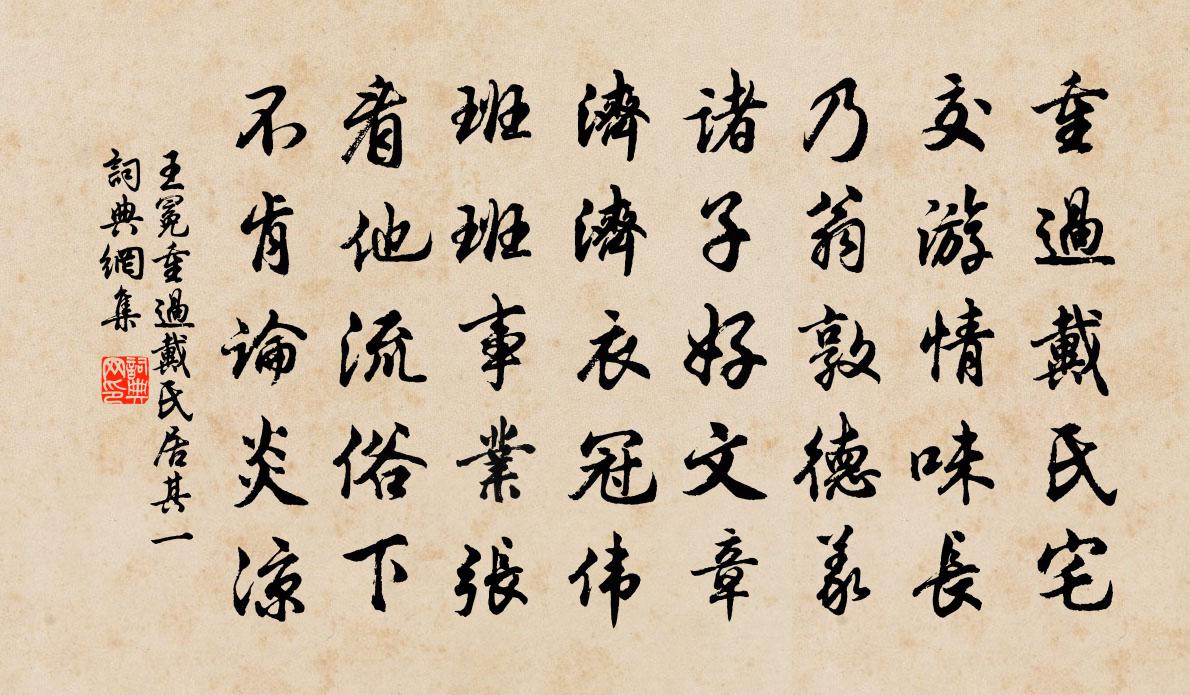 重過戴氏宅
交游情味長
乃翁敦德義
諸子好文章
濟濟衣冠伟
班班事業張
看他流俗下
不肯論炎涼
王冕重過戴氏居其一
詞典網集
詞典网印